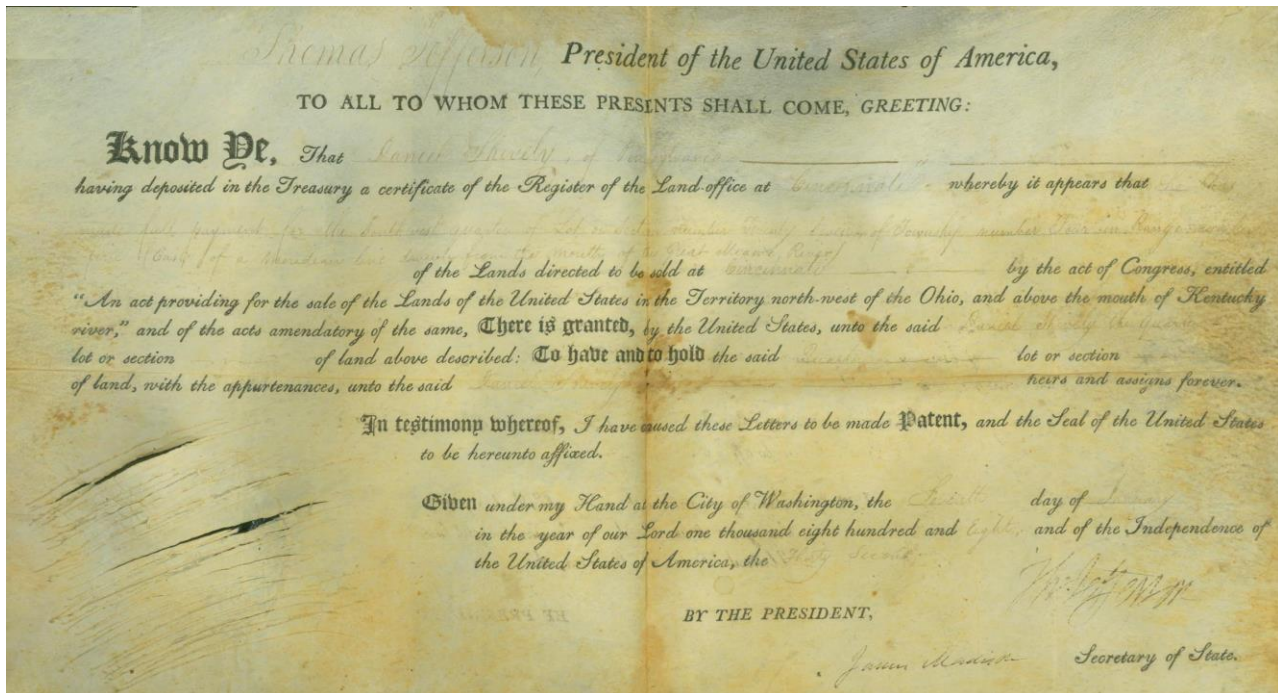 Thomas Jefferson, President of the United States of America,
TO ALL TO WHOM THESE PRESENTS SHALL COME, GREETING:
Know Ye, That Daniel Shively, of Pennsylvania
having deposited in the Treasury a certificate of the Register of the Land-office at Cincinnati whereby it appears that he has
made full payment for the South west quarter of Lot or Section number Twenty of Township number Four in Range number
(East of a meridian line drawn from the mouth of the Great Miami River)
of the Lands directed to be sold at Cincinnati by the act of Congress, entitled
"An act providing for the sale of the Lands of the United States in the Territory north-west of the Ohio, and above the mouth of Kentucky
river," and of the acts amendatory of the same, There is granted, by the United States, unto the said Daniel Shively the quarter
lot or section of land above described: To have and to hold the said quarter lot or section
of land, with the appurtenances, unto the said Daniel Shively heirs and assigns forever.
In testimony whereof, I have caused these Letters to be made Patent, and the Seal of the United States
to be hereunto affixed.
Given under my Hand at the City of Washington, the day of January
in the year of our Lord one thousand eight hundred and eight, and of the Independence of
the United States of America, the Thirty Second.
Th: Jefferson
BY THE PRESIDENT,
James Madison Secretary of State.